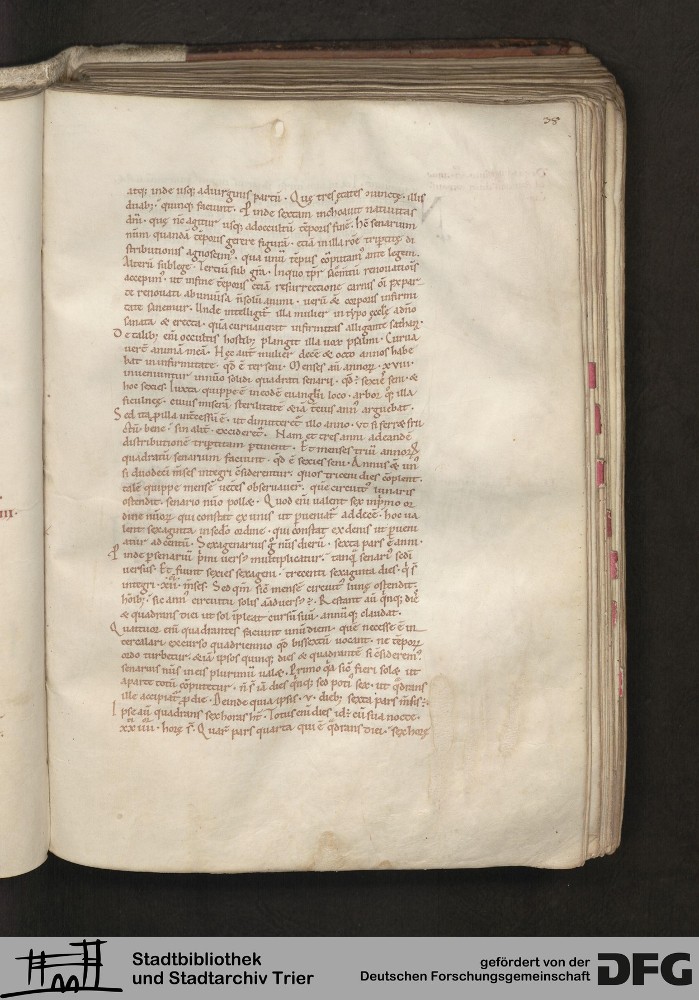 38
atq; inde usq; ad uirginis partū. Quę tres ętates iunctę illis
duab; quinq; faciunt. Inde sextam inchoauit natiuitas
dn̄i. quę nc̄ agitur usq; ad occultū tēporis finē. Hc̄ senarium
num quandā tēporis gerere figurā. etiā in illa rōe tripertitę di
stributionis agnoscim'. qua unū tēpus cōputam' ante legem.
Alterū sub lege. Terciū sub gr̄a. In quo tp̄r sacmtū renouationis
accepim'. ut in fine tēporis etiā resurrectione carnis om̄i ex par
te renouati ab uniuisa n̄ solū animi. uerū & corporis infirmi
tate sanemur. Unde intelligit' illa mulier in typo ęcclę a dn̄o
sanata & erecta. quā curuauerat infirmitas alligante satana.
De talib; em̄ occultis hostib; plangit illa uox psalmi. Curua
uerē animā meā. Hęc aut̄ mulier decē & octo annos habe
bat in infirmitate. qd̄ ē ter seni. Menses aū annorū .xviii.
inueniuntur in nūo solidi quadrati senarii. qd̄ ē sexies seni. &
hoc sexies. Iuxta quippe ē in eodē euangl̄ii loco. arbor q illa
ficulnea. cuius miserā sterilitatē & iā tcius ann' arguebat.
Sed ita p illa intercessū ē. ut dimitteret' illo anno. ut si ferret fru
ctū bene. sin alit̄. excideret'. Nam et tres anni ad eandē
distributionē tripertitam ptinent. Et menses triū annorū
quadratū senarium faciunt. qd̄ ē sexies seni. Annus & un'
si duodecī m̄ses integri c̄siderentur. quos triceni dies cōplent.
talē quippe mensē ueteres obseruauer̄. quē circuit' lunaris
ostendit. senario nūo pollet. Quod em̄ ualent sex in primo or
dine nūorū. qui constat ex unis ut pueniat' ad decē. hoc ua
lent sexaginta in sc̄do ordine. qui constat ex denis ut pueni
atur ad centū. Sexagenarius g̊ nūs dierū. sexta pars ē anni.
Proinde p senariū primi uersus multiplicatur. tanq̄ senari' sc̄di
uersus. Et fiunt sexies sexageni. trecenti sexaginta dies. q̄ s̄
integri .xii. m̄ses. Sed qm̄ sic mensē circuit' lunę ostendit
hōib;. sic ann' circuitu solis aduersus ē. Restant aū q̄nq; dies
& quadrans diei ut sol ipleat cursū suū. annūq; claudat.
Quattuor em̄ quadrantes faciunt unū diem. que necesse ē in
tercalari excurso quadriennio qd̄ bissextū uocant. ne tēporū
ordo turbetur. & iā ipsos quinq; dies & quadrantē si c̄siderem'.
senarius nūs in eis plurimū ualet. Primo q̄a sic fieri solet ut
a parte totū cōputetur. n̄ s̄ iā dies q̄nq; sed poti' sex. ut q̄drans
ille accipiat' p die. Deinde quia ipsis .v. dieb; sexta pars m̄sis ē.
Ipse aū quadrans sex horas ht̄. Totus em̄ dies id ē cū sua nocte.
xx iiii. horę s̄. Quar̄ pars quarta qui ē q̄drans diei. sex horę
Stadtbibliothek
und Stadtarchiv Trier
gefördert von der
Deutschen Forschungsgemeinschaft DFG